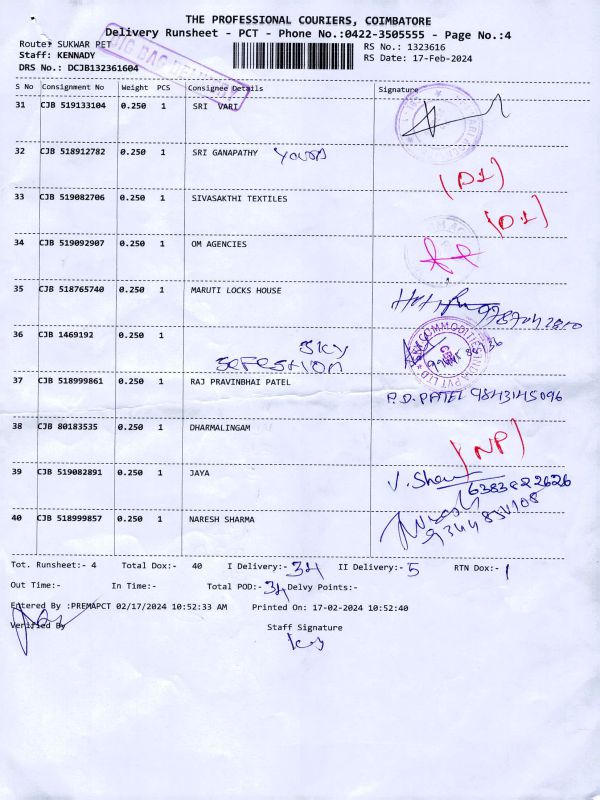 THE PROFESSIONAL COURIERS, COIMBATORE
Delivery Runsheet - PCT - Phone No.:0422-3505555 - Page No.:4
Route: SUKWAR PET
RS No.: 1323616
Staff: KENNADY
RS Date: 17-Feb-2024
DRS No.: DCJB132361604
S No Consignment No Weight PCS Consignee Details Signature
31 CJB 519133104 0.250 1 SRI VARI
32 CJB 518912782 0.250 1 SRI GANAPATHY
(D1)
33 CJB 519082706 0.250 1 SIVASAKTHI TEXTILES
(D1)
34 CJB 519092907 0.250 1 OM AGENCIES
35 CJB 518765740 0.250 1 MARUTI LOCKS HOUSE
36 CJB 1469192 0.250 1
Sky
37 CJB 518999861 0.250 1 RAJ PRAVINBHAI PATEL P.D. PATEL 9843145096
38 CJB 80183535 0.250 1 DHARMALINGAM
(NP)
39 CJB 519082891 0.250 1 JAYA
6383822626
40 CJB 518999857 0.250 1 NARESH SHARMA
Tot. Runsheet:- 4 Total Dox:- 40 I Delivery:- 34 II Delivery:- 5 RTN Dox:- 1
Out Time:- In Time:- Total POD:- 34 Delvy Points:-
Entered By :PREMAPCT 02/17/2024 10:52:33 AM Printed On: 17-02-2024 10:52:40
Verified By Staff Signature